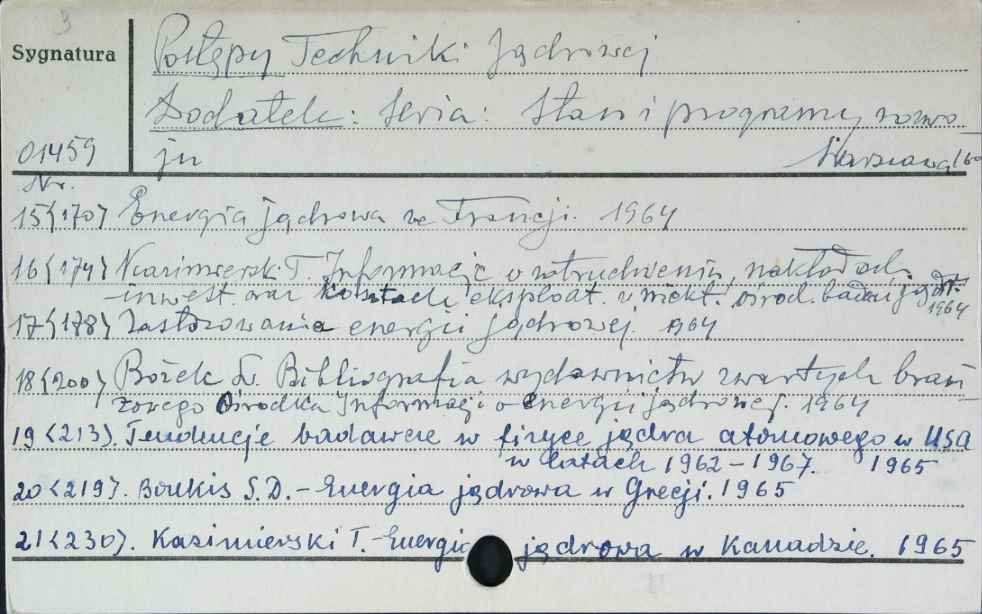 3
Sygnatura
Postępy Techniki Jądrowej
Dodatek: Seria: Stan i programy rozwo
01459 ju Warszawa
Nr.
15<170> Energia jądrowa we Francji. 1964
16<174> Kazimierski T. Informacje o zatrudnieniu, nakładach
inwest. oraz kosztach eksploat. w niekt. ośrod. badań jądr. 1964
17<178> Zastosowania energii jądrowej. 1964
18<200> Bożek Ł. Bibliografia wydawnictw zwartych bran
żowego Ośrodka Informacji o energii jądrowej. 1964
19<213>. Tendencje badawcze w fizyce jądra atomowego w USA
w latach 1962-1967. 1965
20<219>. Boukis S.D. - Energia jądrowa w Grecji. 1965
21<230>. Kazimierski T. - Energia jądrowa w Kanadzie. 1965